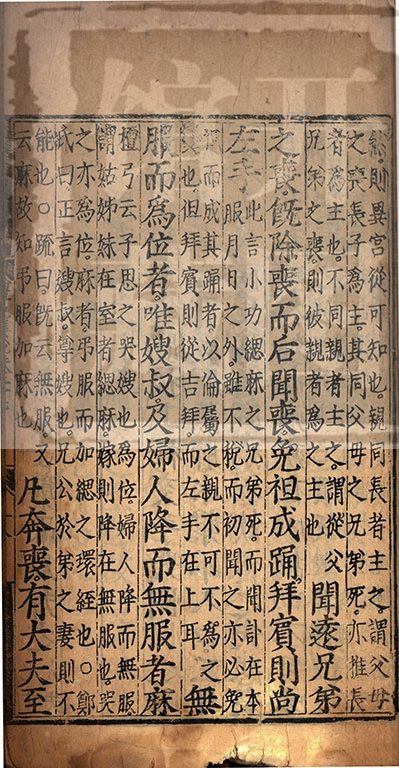 則異宮從可知也親同長者主之謂父母
之喪長子爲主其同父母之兄弟死亦推長
者爲主也不同親者主之謂從父
兄弟之喪則彼親者爲之主也
聞遠兄弟
之喪既除喪而后聞喪免袒成踊拜賓則尚
左手
此言小功緦麻之兄弟死而聞訃在本
服月日之外雖不稅而初聞之亦必免
袒而成其踊者以倫屬之親不可不爲之
也但拜賓則從吉拜而左手在上耳
無
服而爲位者唯嫂叔及婦人降而無服者麻
檀弓云子思之哭嫂也爲位婦人降而無服
謂姑姊妹在室者緦麻嫁則降在無服也哭
之亦爲位麻者弔服而加緦之環絰也○鄭
氏曰正言嫂叔尊嫂也兄公於弟之妻則不
能也○疏曰既云無服又
云麻故知弔服加麻也
凡奔喪有大夫至